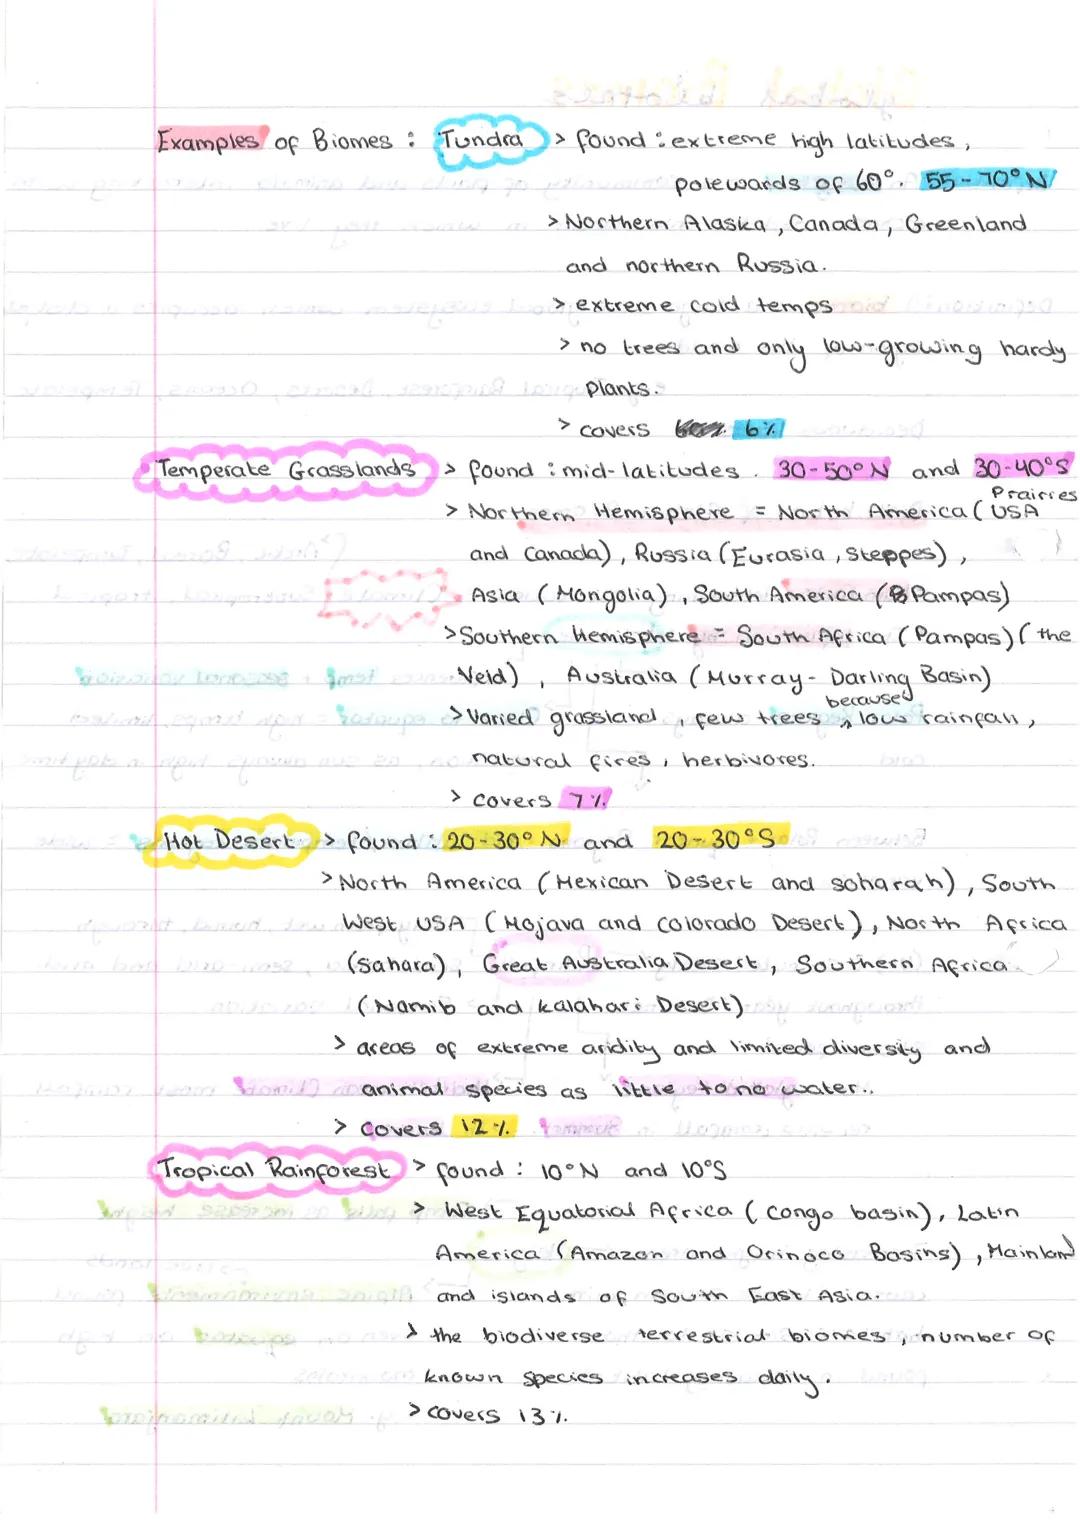 Examples of Biomes : Tundra > found : extreme high latitudes,
polewards of 60°. 55-70°N
> Northern Alaska, Canada, Greenland
and northern Russia.
> extreme cold temps
> no trees and only low-growing hardy
plants.
> covers 6%
Temperate Grasslands > found : mid-latitudes. 30-50°N and 30-40°S
Prairies
> Northern Hemisphere = North America (USA
and Canada), Russia (Eurasia, Steppes),
Asia (Mongolia), South America (Pampas)
> Southern Hemisphere = South Africa (Pampas) (the
Veld), Australia (Murray-Darling Basin)
because
> Varied grassland, few trees ^ low rainfall,
natural fires, herbivores.
> covers 7%
Hot Desert > found : 20-30°N and 20-30°S
> North America (Mexican Desert and soharah), South
West USA (Mojava and Colorado Desert), North Africa
(Sahara), Great Australia Desert, Southern Africa
(Namib and kalahari Desert)
> areas of extreme aridity and limited diversity and
animal species as little to no water..
> Covers 12%
Tropical Rainforest > found : 10°N and 10°S
> West Equatorial Africa (Congo basin), Latin
America (Amazon and Orinoco Basins), Mainland
and islands of South East Asia.
> the biodiverse terrestrial biomes, number of
known species increases daily.
> covers 13%